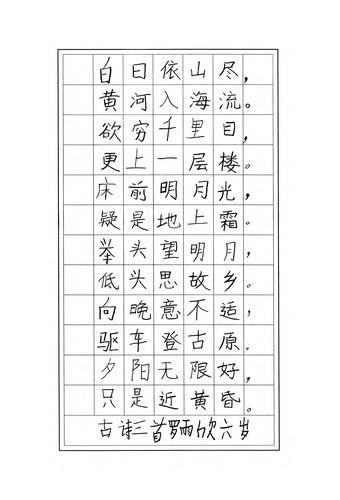 白日依山尽，
黄河入海流。
欲穷千里目，
更上一层楼。
床前明月光，
疑是地上霜。
举头望明月，
低头思故乡。
向晚意不适，
驱车登古原.
夕阳无限好，
只是近黄昏。
古诗三首罗雨欣六岁